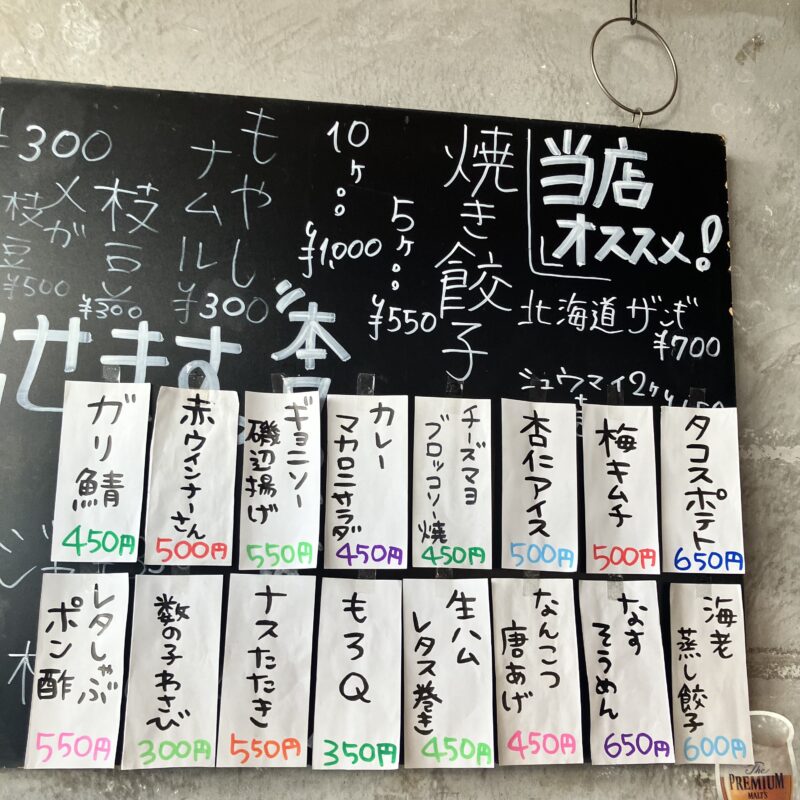 当店
オススメ!
北海道ザンギ
¥700
シュウマイ2ケ
焼き餃子
5ケ
¥550
10ケ
¥1,000
もやし
ナムル
¥300
枝豆
¥300
メガ
枝豆
¥500
¥300
せます。
タコスポテト
650円
梅キムチ
500円
杏仁アイス
500円
チーズマヨ
ブロッコリー焼
450円
カレー
マカロニサラダ
450円
ギョニソー
磯辺揚げ
550円
赤ウインナーさん
500円
ガリ鯖
450円
海老
蒸し餃子
600円
なす
そうめん
650円
なんこつ
唐あげ
450円
生ハム
レタス巻き
450円
もろQ
350円
ナスたたき
550円
数の子わさび
300円
レタしゃぶ
ポン酢
550円
The
PREMIUM
MALT'S